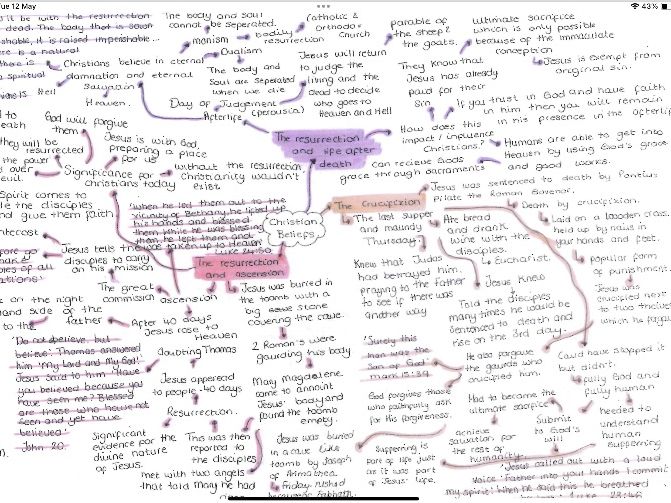 Tue 12 May
43%
it be with the resurrection
dead. The body that is sown
perishable, it is raised imperishable...
is a natural
there is
spiritual
The body and soul
cannot be seperated.
monism
bodily
resurrection
Catholic &
orthodox
Church
Dualism
The body and
Soul are seperated
when we die
Christians believe in eternal
damnation and eternal
Salvation
is Hell
Heaven.
Day of Judgement
(perousia)
Afterlife
Jesus will return
to judge the
living and the
dead to decide
who goes to
Heaven and Hell
parable of
the sheep &
the goats.
ultimate sacrifice
which is only possible
because of the immaculate
conception
Jesus is exempt from
original sin.
They know that
Jesus has already
paid for their
Sin
If you trust in God and have faith
in him then you will remain
in his presence in the afterlife
How does this
impact / influence
Christians?
Humans are able to get into
Heaven by using God's grace
and good works.
can recieve Gods
grace through sacraments
The resurrection
and life after
death
God will forgive
them
they will be
resurrected
the power
over
evil.
Jesus is with God,
preparing a place
for us
Significance for
christians today
without the resurrection
Christianity wouldn't
exist
Spirit comes to
the disciples
and give them faith
'when he led them out to the
vicinity of Bethany, he lifted up
his hands and blessed
them. While he was blessing
them he left them and
was taken up to Heaven'
Luke 24:50
Christian
Beliefs
The Crucifixion
Jesus was sentenced to death by Pontius
Pilate the Roman Govenor.
Death by crucifixion.
The last supper
and maundy
Thursday
Ate bread
and drank
wine with the
disciples.
Eucharist
Laid on a wooden cross
held up by nails in
your hands and feet.
popular form
of punishment
Jesus was
crucified next
to two thieves
which he forgave
Knew that Judas
had betrayed him.
praying to the father
to see if there was
another way
Jesus knew
Told the disciples
many times he would be
sentenced to death and
rise on the 3rd day.
Jesus tells the
disciples to carry
on his mission
The great
commission
The resurrection
and ascension
ascension
on the right
hand side of the
father
After 40 days
Jesus rose to
Heaven
Jesus was buried in
the tomb with a
big stone
covering the cave.
2 Roman's were
gaurding his body
May Magdalene
came to annoint
Jesus' body and
found the tomb
empty.
'Do not believe, but
believe.' Thomas answered
him 'My Lord and My God'.
Jesus said to him 'Have
you believed because you
have seen me? Blessed
are those who have not
seen and yet have
believed'
John 20
doubting Thomas
Jesus appered
to people 40 days
Resurrection.
Significant
evidence for the
divine nature
of Jesus.
This was then
reported to
the disciples
met with two angels
that told mary he had
Jesus was buried
in a cave like
tomb by Jason
of Arimathea
Friday
because Sabbath
'Surely this
man was the
Son of God'
mark 15:39
God forgives those
who faithfully ask
for his forgiveness
Supperring is
part of life just
as it was part
of Jesus' life.
He also forgave
the gaurds who
crucified him.
Had to become the
ultimate sacrifice
achieve
salvation for
the rest of
humanity.
Submit
to God's
will
Could have stopped it
but didn't.
fully God and
fully human
needed to
understand
human
supperring
Jesus called out with a loud
voice 'Father into your hands I commit
my spirit' When he said this he breathed